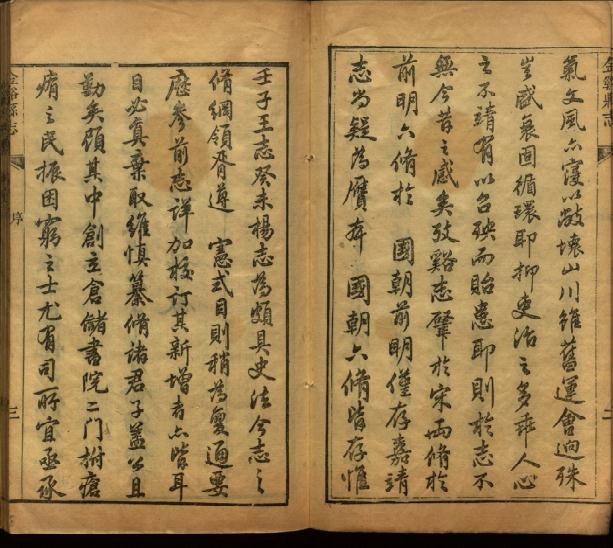 氣文風亦寖以敝壞山川雖舊運會迥殊
豈盛衰固循環耶抑吏治之多乖人心
之不靖有以召殃而貽患耶則於志不
無今昔之感矣攷谿志肇於宋而脩於
前明六脩於 國朝前明僅存嘉靖
志尚疑為贋夲 國朝六脩皆存惟
壬子王志癸未楊志為頗具史法今志之
脩綱領胥遵 憲式目則稍為變通要
歷參前志詳加校訂其新增者亦皆耳
目必真棄取維慎纂脩諸君子益公且
勤矣顧其中創立倉儲書院二門拊瘡
痏之民振困窮之士尤有司所宜亟承
金谿縣志
二
金谿縣志
序
三